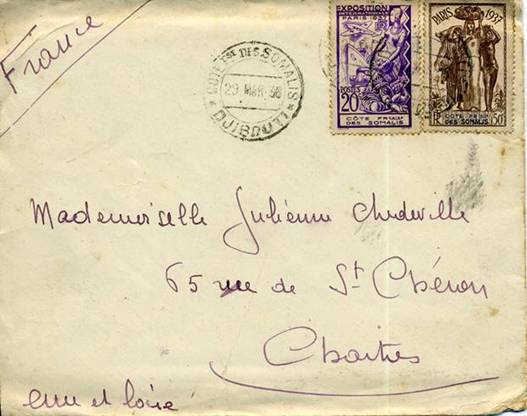 France
CÔTE FSE DES SOMALIS
29 MAR 38
DJIBOUTI
EXPOSITION
INTERNATIONALE
PARIS 1937
POSTES
20c
CÔTE FRSE
DES SOMALIS
PARIS 1937
CÔTE FRSE
DES SOMALIS
RF
50c
Mademoiselle Julienne Chedeville
65 rue de St Chéron
Chartres
Eure et Loire